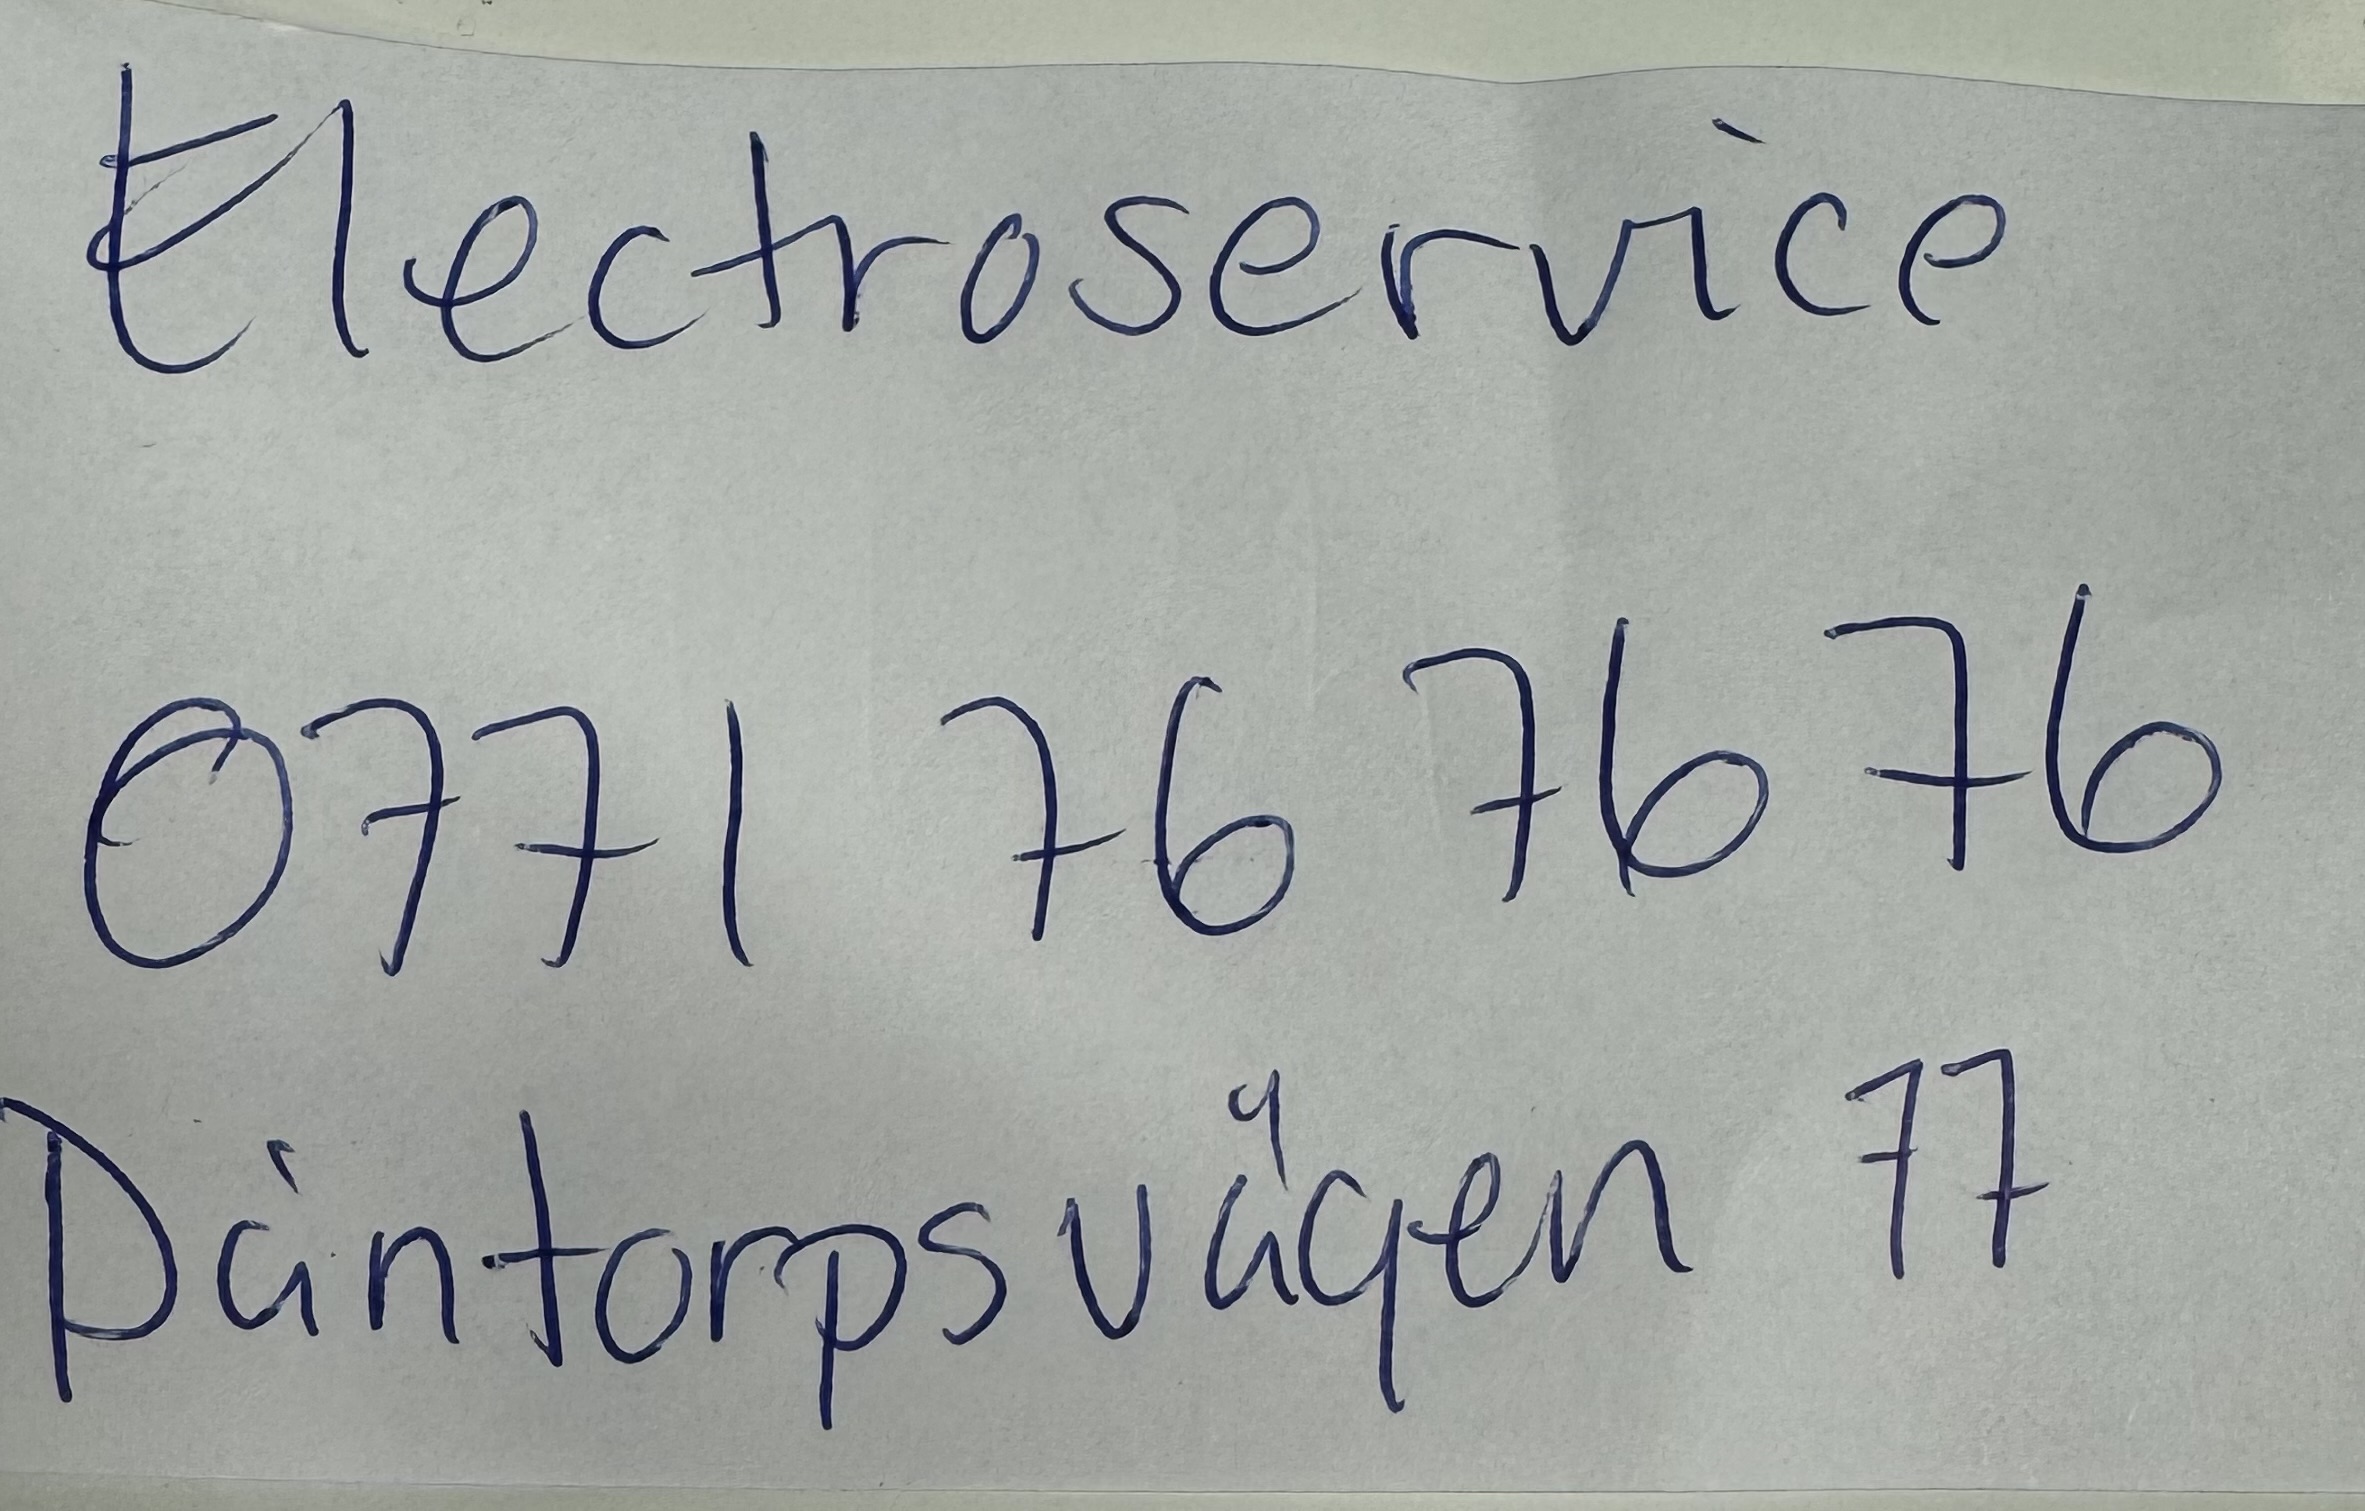 Electroservice
0771 76 76 76
Dåntorpsvägen 77